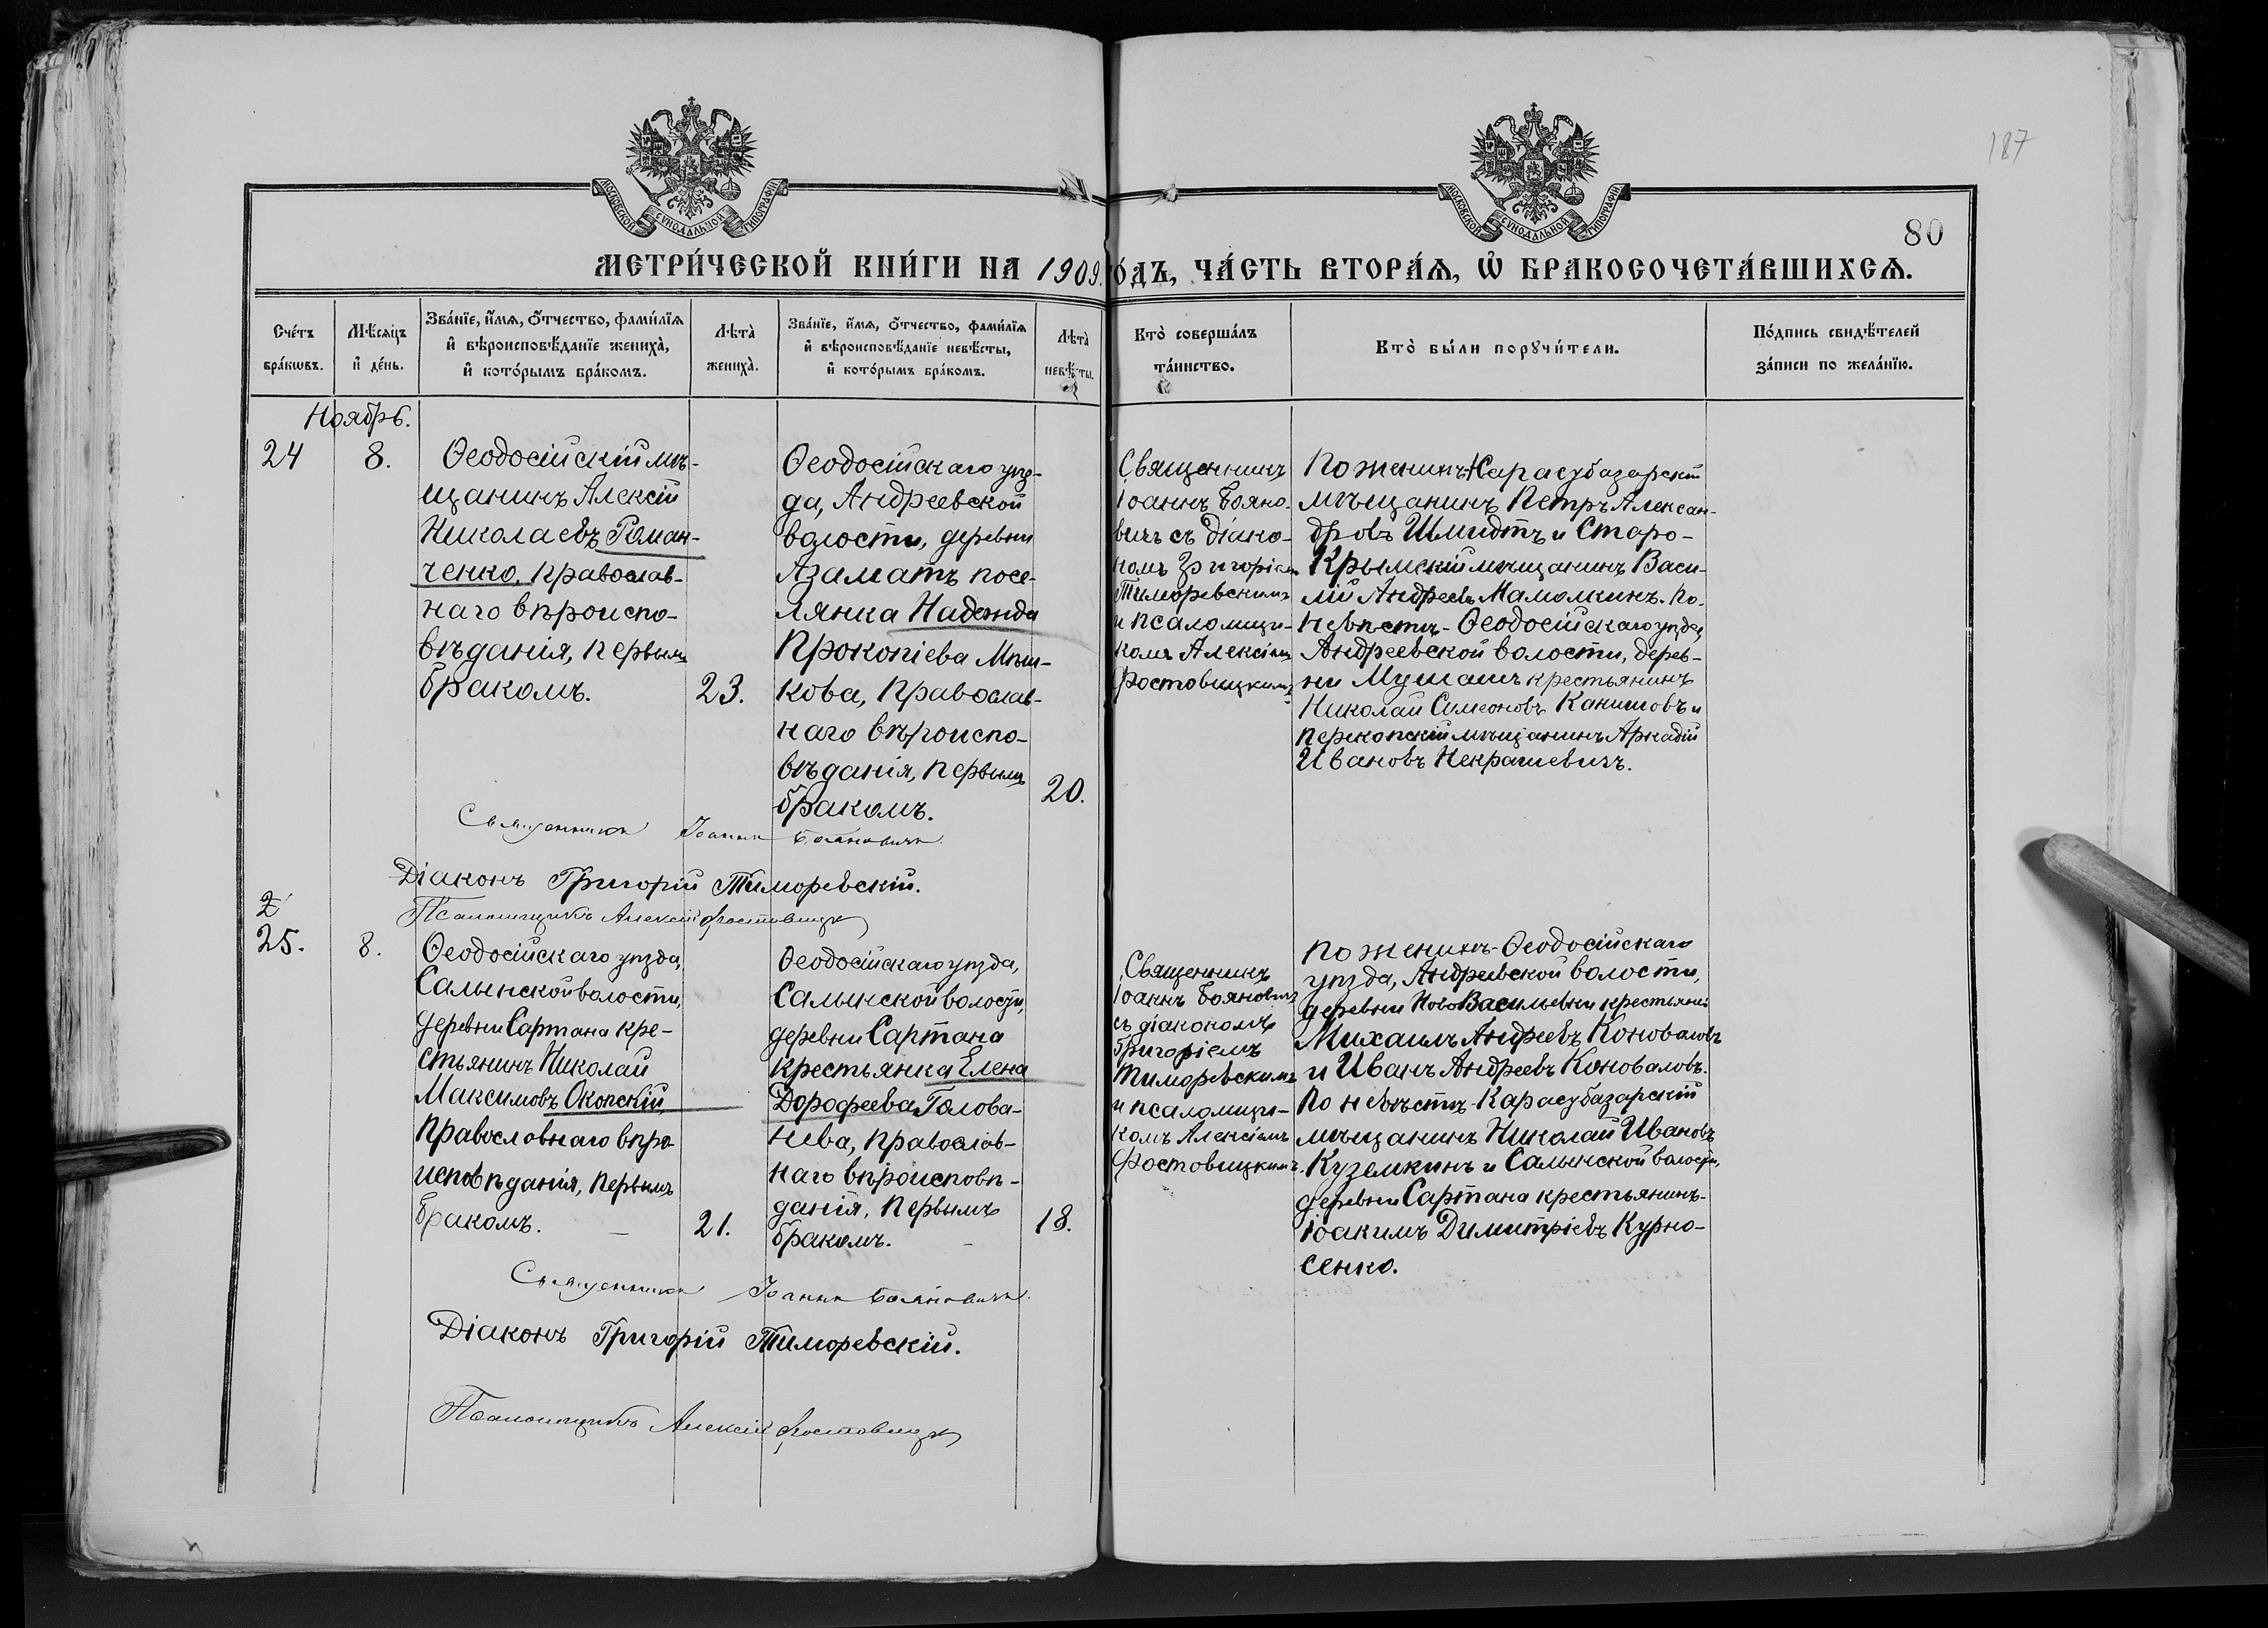 187
80
МЕТРИ́ЧЕСКОЙ КНИ́ГИ НА 1909 ГО́ДЪ, ЧА́СТЬ ВТОРА́Ѧ, Ѽ БРАКОСОЧЕТА́ВШИХСѦ.
МОСКОВСКОЙ СѴНОДАЛЬНОЙ ТИПОГРАФІИ
МОСКОВСКОЙ СѴНОДАЛЬНОЙ ТИПОГРАФІИ
Сче́тъ
бра́кѡвъ.
Мѣ́сѧцъ
и҆ де́нь.
Зва́нїе, и҆́мѧ, ѻ҆́тчество, фами́лїѧ
и҆ вѣроисповѣ́данїе жениха̀,
и҆ кото́рымъ бра́комъ.
Лѣта̀
жениха̀.
Зва́нїе, и҆́мѧ, ѻ҆́тчество, фами́лїѧ
и҆ вѣроисповѣ́данїе невѣ́сты,
и҆ кото́рымъ бра́комъ.
Лѣта̀
невѣ́сты.
Кто̀ соверша́лъ
та́инство.
Кто̀ бы́ли порꙋчи́тели.
По́дпись свидѣ́телей
за́писи по жела́нїю.
Ноябрь.
24
8.
Ѳеодосійскій мѣ-
щанинъ Алексій
Николаевъ Роман-
ченко, православ-
наго вѣроиспо-
вѣданія, первымъ
бракомъ.
23.
Ѳеодосійскаго уѣз-
да, Андреевской
волости, деревни
Азаматъ посе-
лянка Надежда
Прокопіева Мѣш-
кова, православ-
наго вѣроиспо-
вѣданія, первымъ
бракомъ.
20.
Священникъ
Іоаннъ Бояно-
вичъ съ діако-
номъ Григоріемъ
Тиморевскимъ
и псаломщи-
комъ Алексіемъ
Фостовицкимъ
По женихѣ Карасубазарскій
мѣщанинъ Петръ Алексан-
дровъ Шмидтъ и Старо-
Крымскій мѣщанинъ Васи-
лій Андреевъ Мамалкинъ. По
невѣстѣ - Ѳеодосійскаго уѣзда,
Андреевской волости, дерев-
ни Мушашъ крестьянинъ
Николай Симеоновъ Канишовъ и
Перекопскій мѣщанинъ Аркадій
Ивановъ Некрашевичъ.
Священникъ Іоаннъ Бояновичъ.
Діаконъ Григорій Тиморевскій.
Псаломщикъ Алексій Фостовицкій
25.
8.
Ѳеодосійскаго уѣзда,
Салынской волости,
деревни Сартана кре-
стьянинъ Николай
Максимовъ Окопскій,
православнаго вѣро-
исповѣданія, первымъ
бракомъ.
21.
Ѳеодосійскаго уѣзда,
Салынской волости,
деревни Сартана
крестьянка Елена
Дорофеева Голова-
нева, православ-
наго вѣроисповѣ-
данія, первымъ
бракомъ.
18.
Священникъ
Іоаннъ Бояновичъ
съ діакономъ
Григоріемъ
Тиморевскимъ
и псаломщи-
комъ Алексіемъ
Фостовицкимъ.
По женихѣ - Ѳеодосійскаго
уѣзда, Андреевской волости,
деревни НовоВасильевки крестьяне
Михаилъ Андреевъ Коноваловъ
и Иванъ Андреевъ Коноваловъ.
По невѣстѣ - Карасубазарскій
мѣщанинъ Николай Ивановъ
Куземкинъ и Салынской волости,
деревни Сартана крестьянинъ
Іоакимъ Димитріевъ Курно-
сенко.
Священникъ Іоаннъ Бояновичъ.
Діаконъ Григорій Тиморевскій.
Псаломщикъ Алексій Фостовицкій